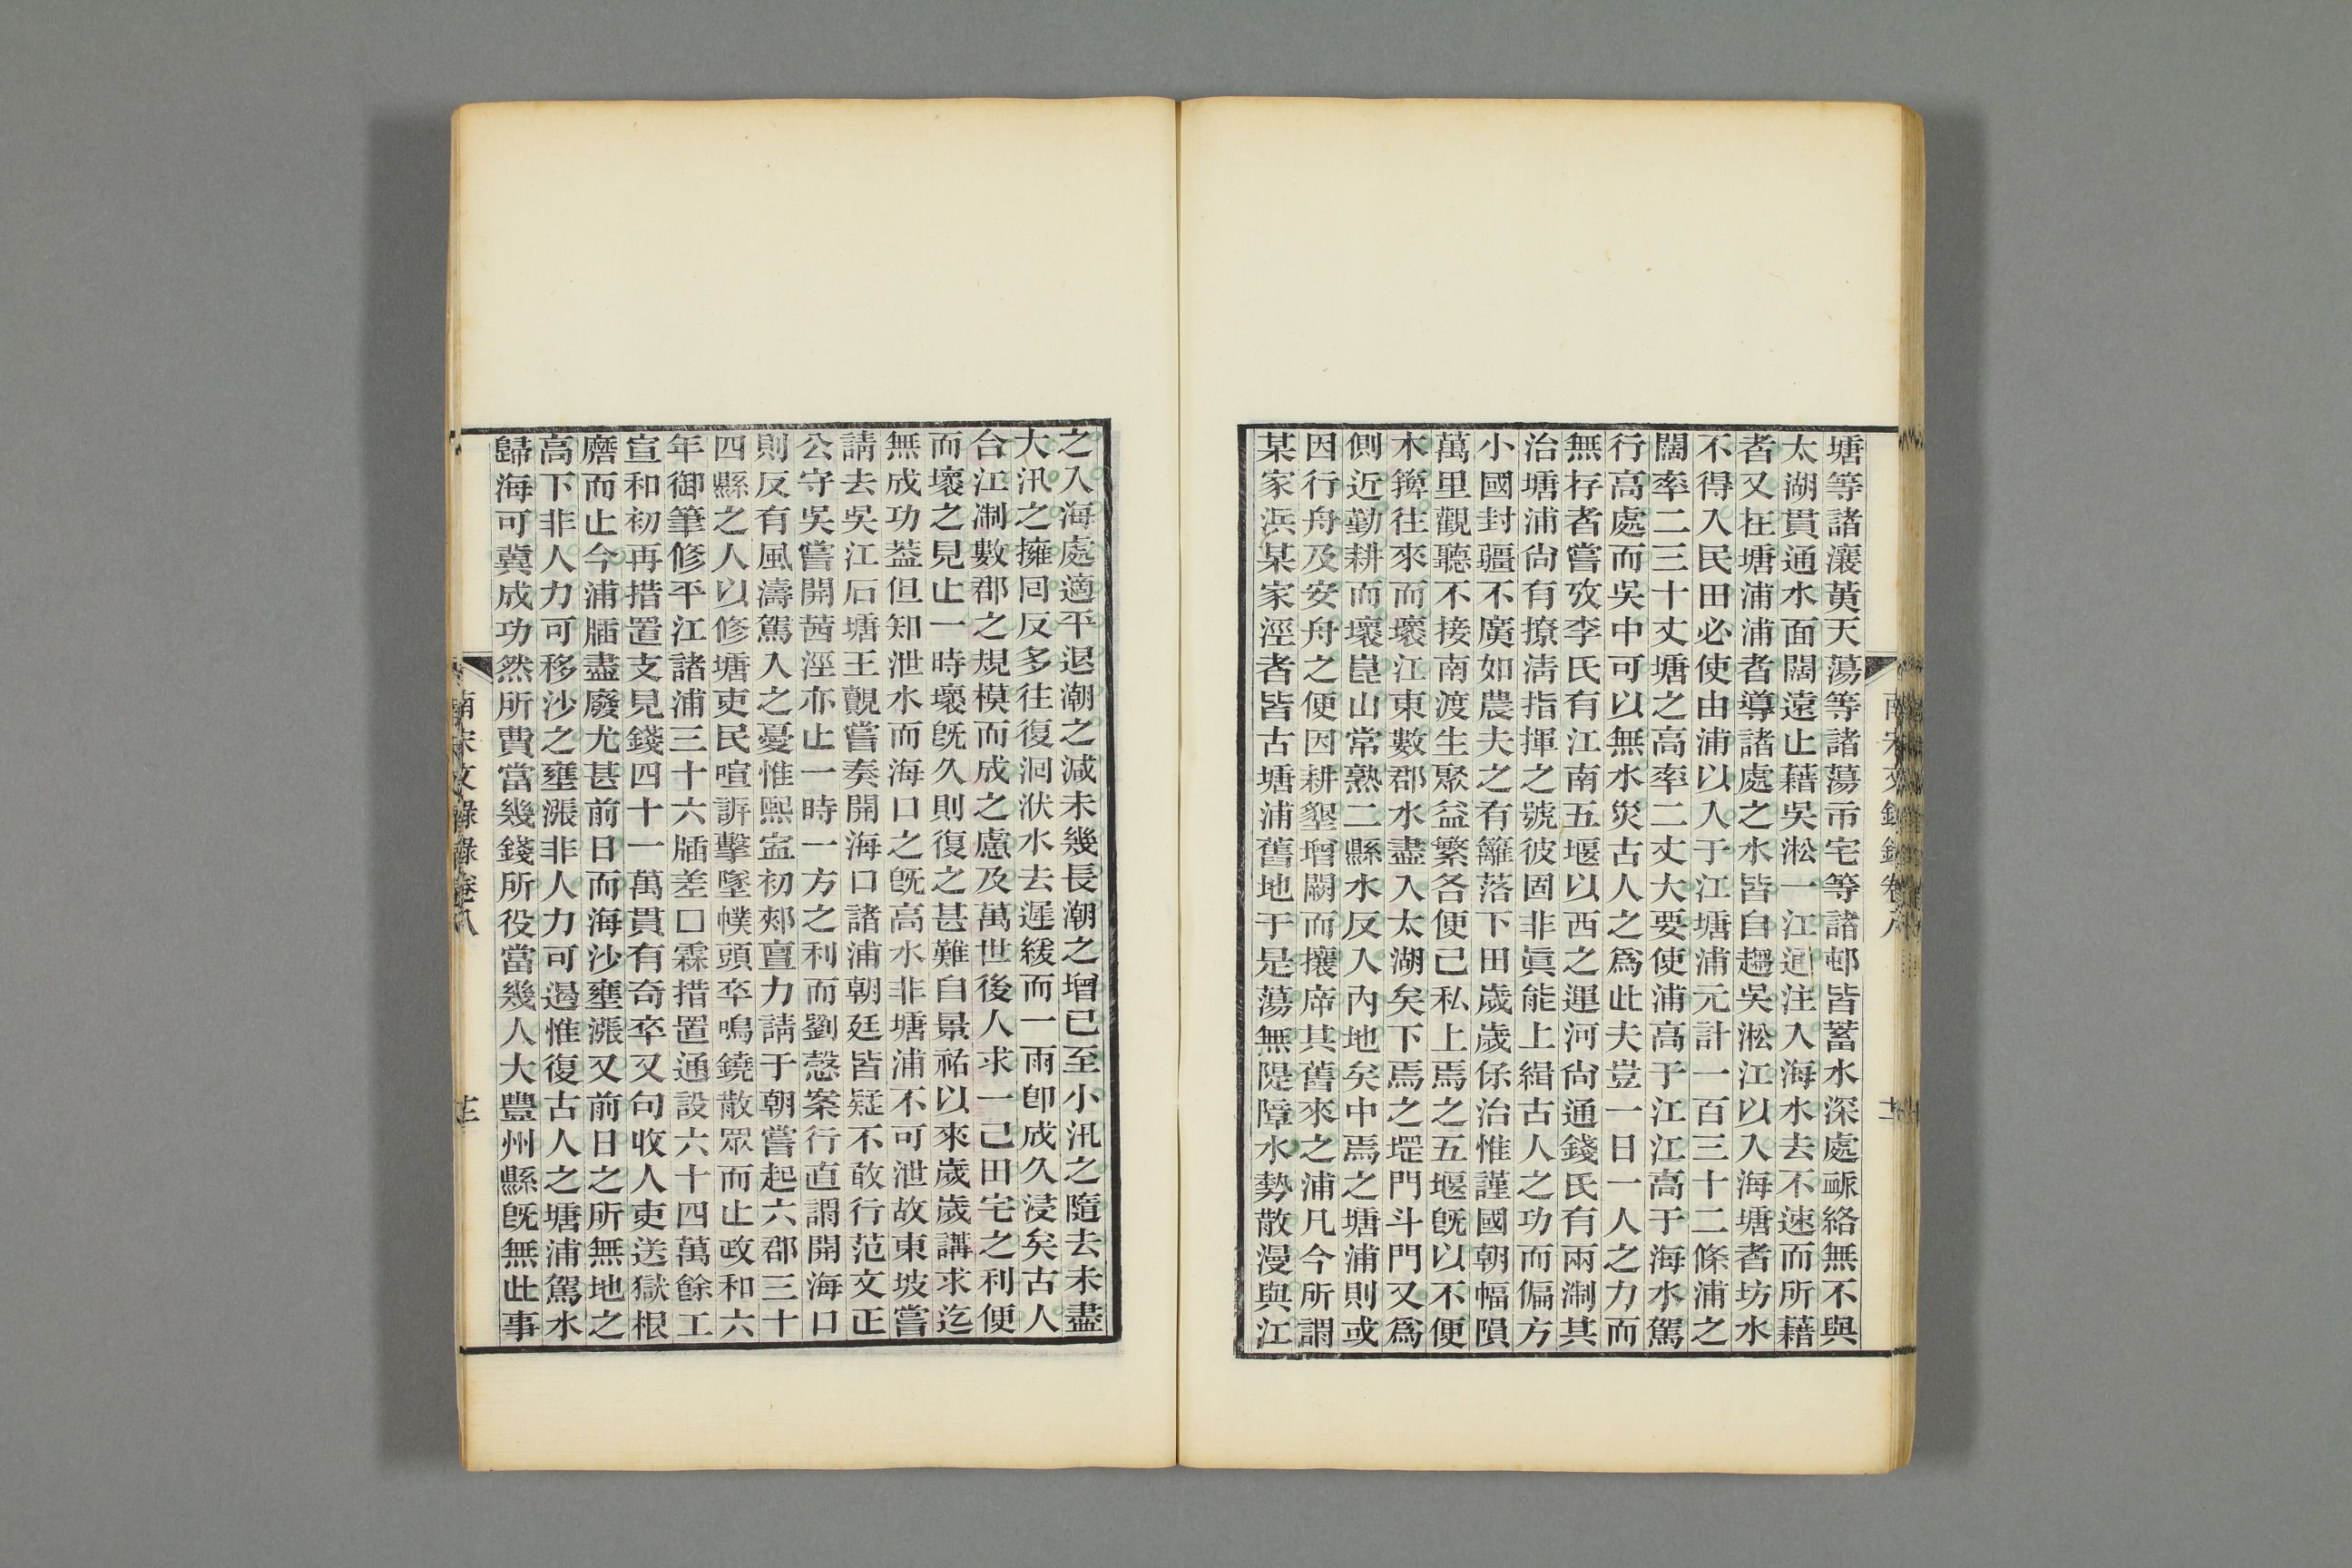 塘等諸瀼黃天蕩等諸蕩帀宅等諸邨皆蓄水深處𧖴絡無不與
太湖貫通水面闊遠止藉吳淞一江通注入海水去不速而所藉
者又在塘浦浦者導諸處之水皆自趨吳淞江以入海塘者坊水
不得入民田必使由浦以入于江塘浦元計一百三十二條浦之
闊率二三十丈塘之高率二丈大要使浦高于江江高于海水駕
行高處而吳中可以無水災古人之爲此夫豈一日一人之力而
無存者嘗攷李氏有江南五堰以西之運河尙通錢氏有兩淛其
治塘浦尙有撩淸指揮之號彼固非眞能上緝古人之功而偏方
小國封疆不廣如農夫之有籬落下田歲歲係治惟謹國朝幅隕
萬里觀聽不接南渡生聚益繁各便己私上焉之五堰旣以不便
木簰往來而壞江東數郡水盡入太湖矣下焉之堽門斗門又爲
側近勤耕而壞崑山常熟二縣水反入內地矣中焉之塘浦則或
因行舟及安舟之便因耕墾增闢而攘席其舊來之浦凡今所謂
某家浜某家涇者皆古塘浦舊地于是蕩無隄障水勢散漫與江
南宋文錄錄卷八
十二
之入海處適平退潮之減未幾長潮之增已至小汛之隨去未盡
大汛之擁回反多往復洄洑水去遲緩而一雨卽成久浸矣古人
合江淛數郡之規模而成之慮及萬世後人求一己田宅之利便
而壞之見止一時壞旣久則復之甚難自景祐以來歲歲講求迄
無成功葢但知泄水而海口之旣高水非塘浦不可泄故東坡嘗
請去吳江石塘王觀嘗奏開海口諸浦朝廷皆疑不敢行范文正
公守吳嘗開茜涇亦止一時一方之利而劉愨案行直謂開海口
則反有風濤駕入之憂惟熙寍初郟亶力請于朝嘗起六郡三十
四縣之人以修塘吏民喧訴擊墜幞頭卒鳴鐃散眾而止政和六
年御筆修平江諸浦三十六牐差囗霖措置通設六十四萬餘工
宣和初再措置支見錢四十一萬貫有奇卒又句收人吏送獄根
磨而止今浦牐盡廢尤甚前日而海沙壅漲又前日之所無地之
高下非人力可移沙之壅漲非人力可遏惟復古人之塘浦駕水
歸海可冀成功然所費當幾錢所役當幾人大豐州縣旣無此事
南宋文錄錄卷八
十三